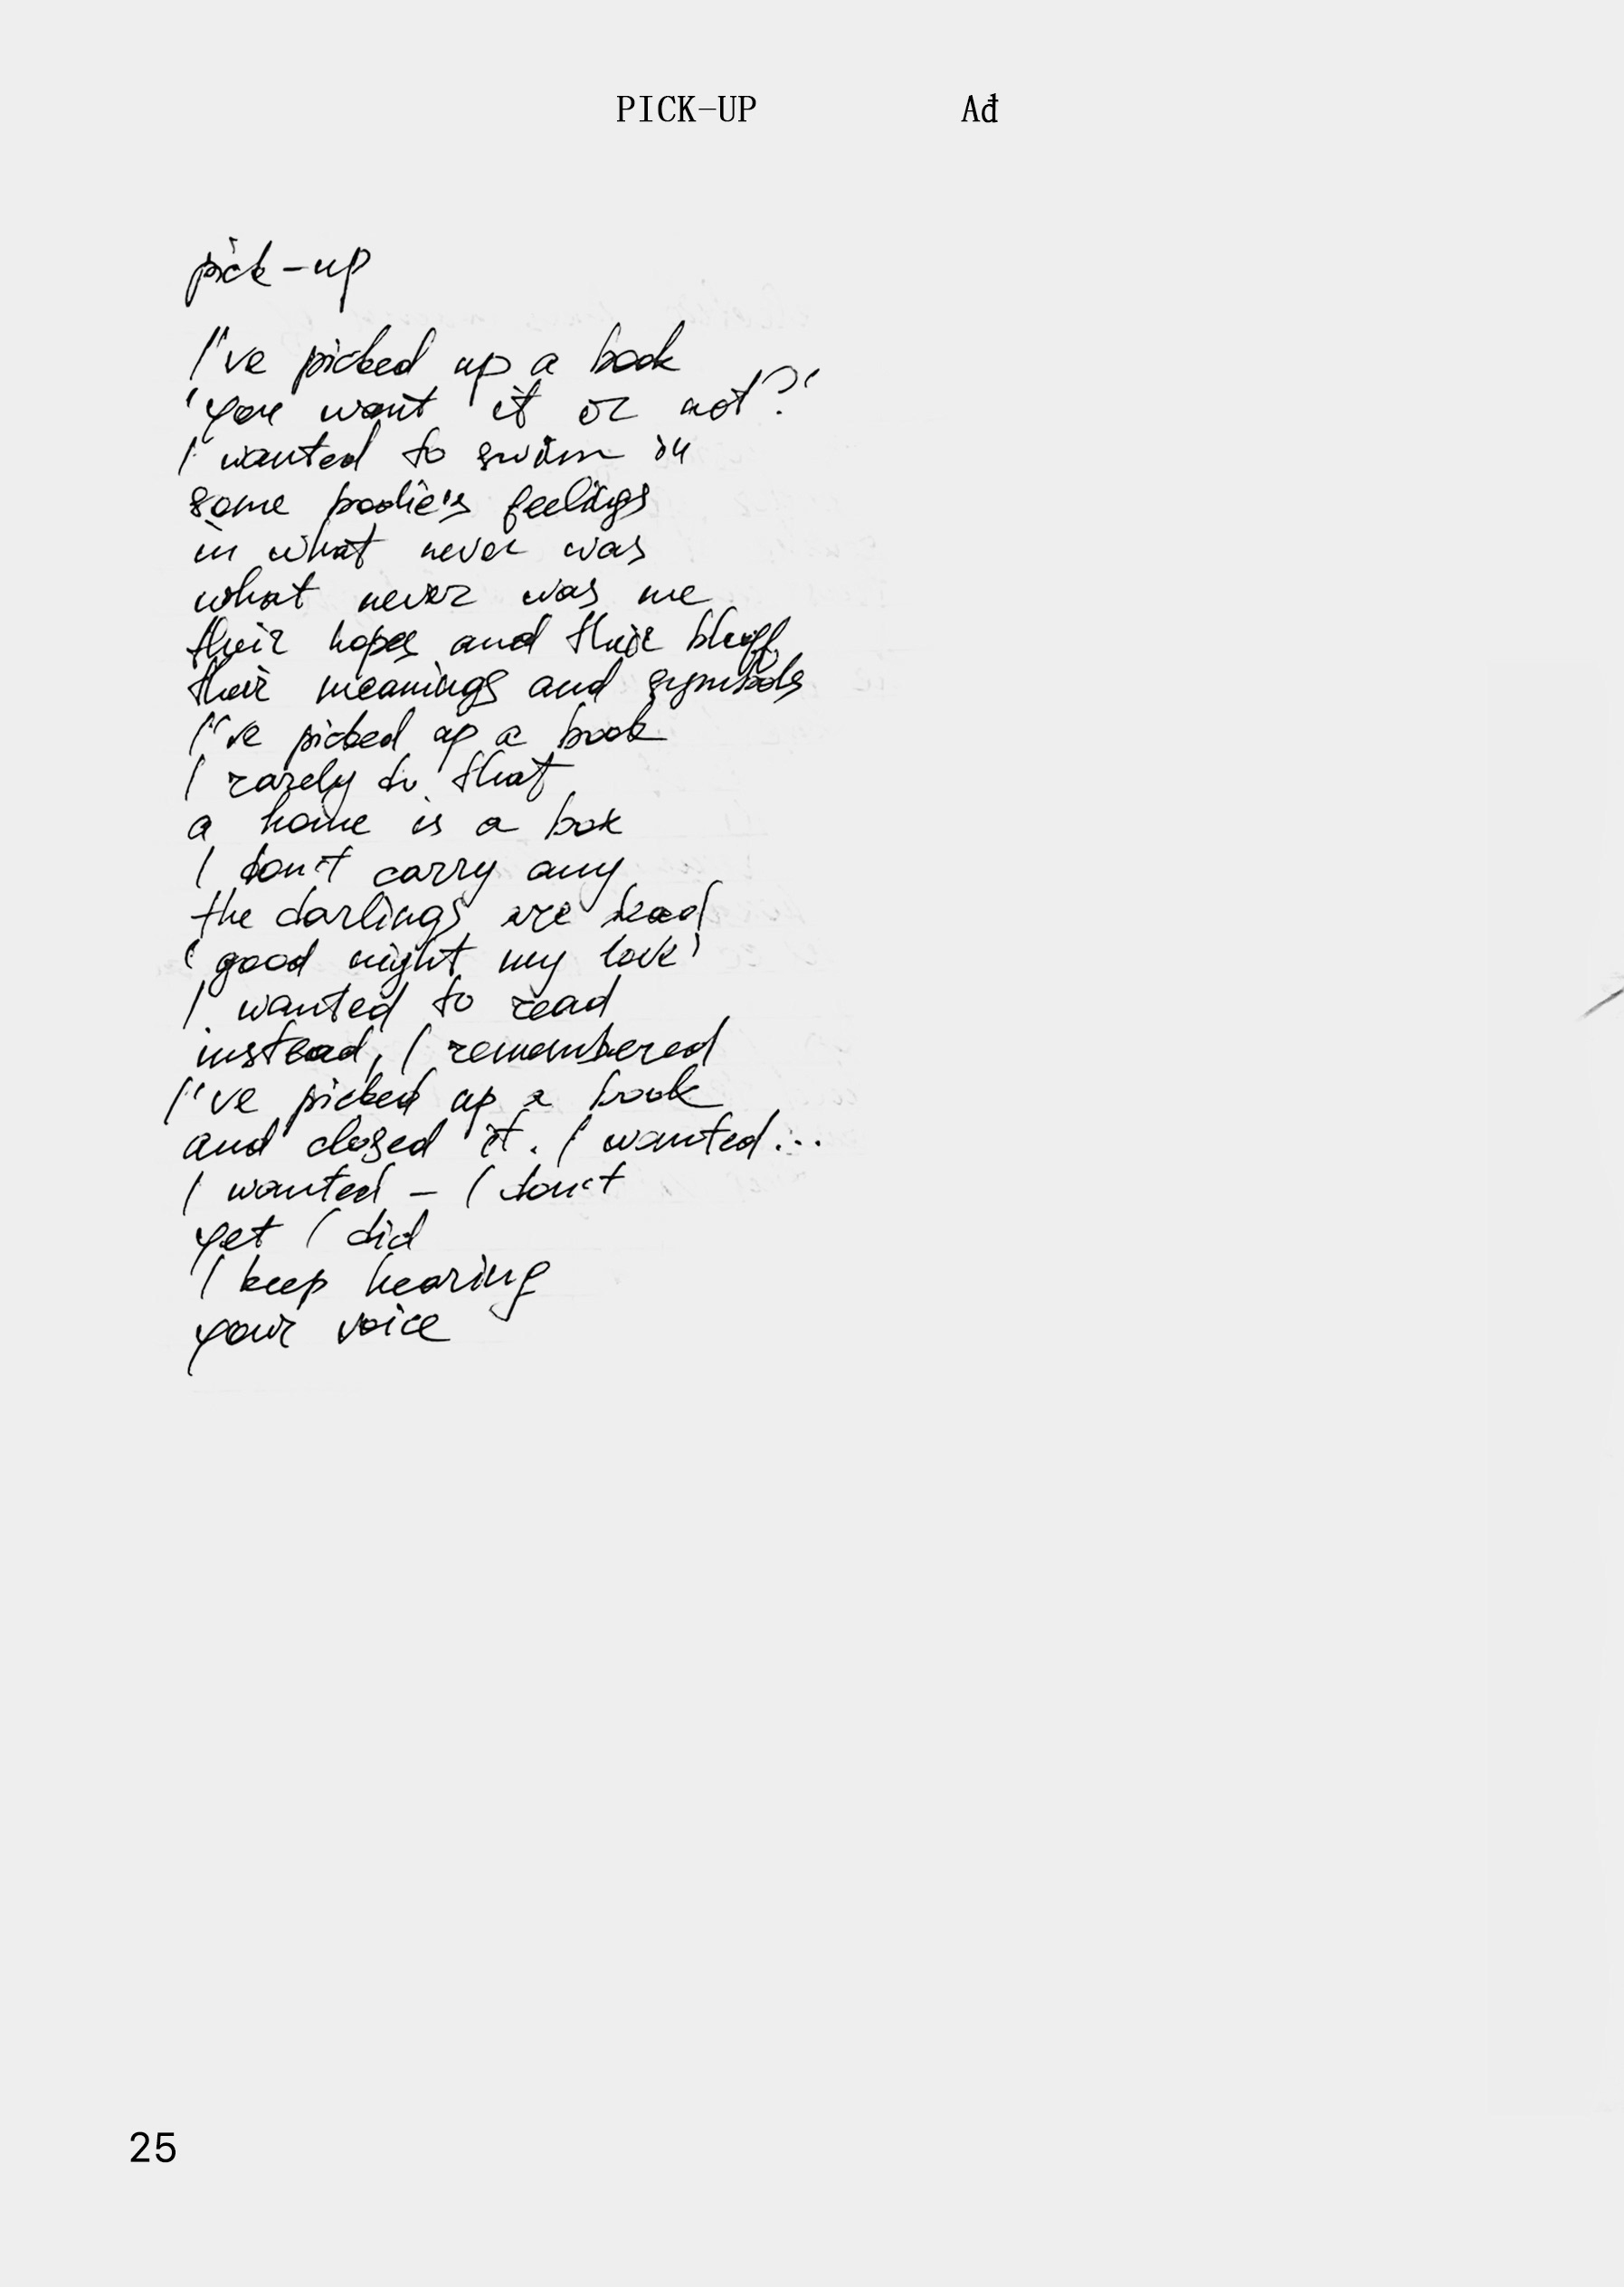 PICK-UP Ađ
pick-up
I've picked up a book
'you want it or not?'
I wanted to swim in
some bodie's feelings
in what never was
what never was me
their hopes and their bluff
their meanings and symbols
I've picked up a book
I rarely do that
a home is a box
I don't carry any
the darlings are dead
'good night my love'
I wanted to read
instead, I remembered
I've picked up a book
and closed it. I wanted...
I wanted – I don't
yet I did
I keep hearing
your voice
25